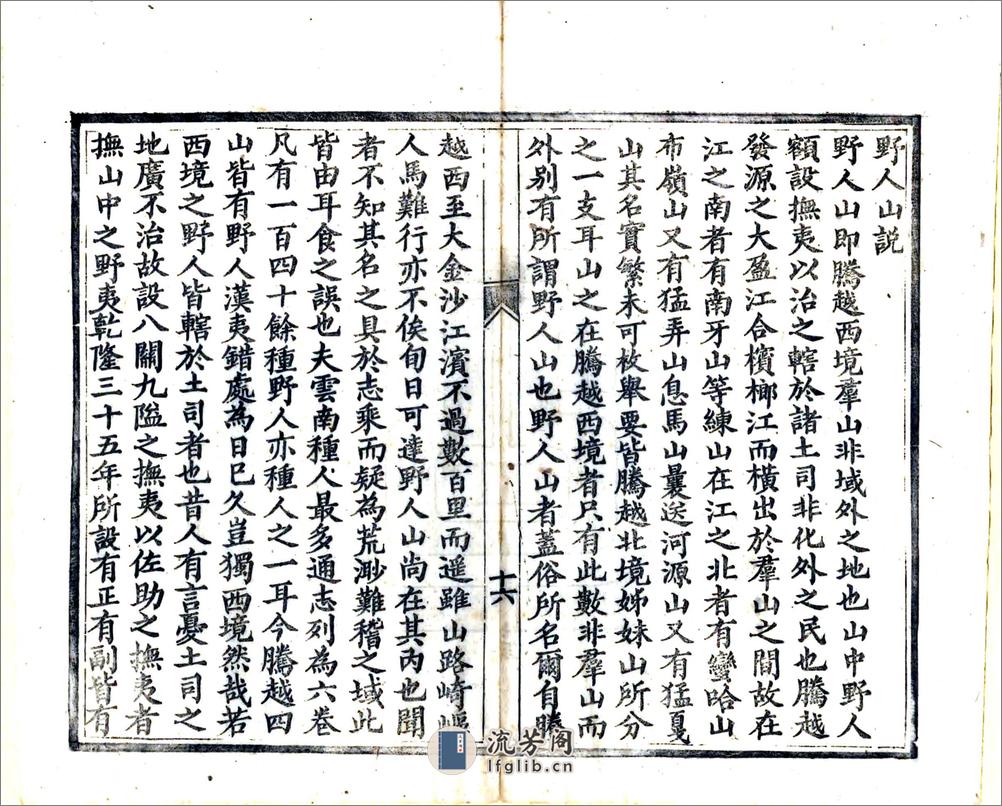 野人山說
野人山即騰越西境羣山非域外之地也山中野人
額設撫夷以治之轄於諸土司非化外之民也騰越
發源之大盈江合檳榔江而橫出於羣山之間故在
江之南者有南牙山等練山在江之北者有蠻哈山
布嶺山又有猛弄山息馬山曩送河源山又有猛戛
山其名實繁未可枚舉要皆騰越北境姊妹山所分
之一支耳山之在騰越西境者只有此數非羣山而
外別有所謂野人山也野人山者蓋俗所名爾自騰
十六
越西至大金沙江濱不過數百里而遥雖山路崎嶇
人馬難行亦不俟旬日可達野人山尚在其內也聞
者不知其名之具於志乘而疑為荒渺難稽之域此
皆由耳食之誤也夫雲南種人最多通志列為六卷
凡有一百四十餘種野人亦種人之一耳今騰越四
山皆有野人漢夷錯處為日已久豈獨西境然哉若
西境之野人皆轄於土司者也昔人有言憂土司之
地廣不治故設八關九隘之撫夷以佐助之撫夷者
撫山中之野夷乾隆三十五年所設有正有副皆有
流芳阁
lfglib.cn